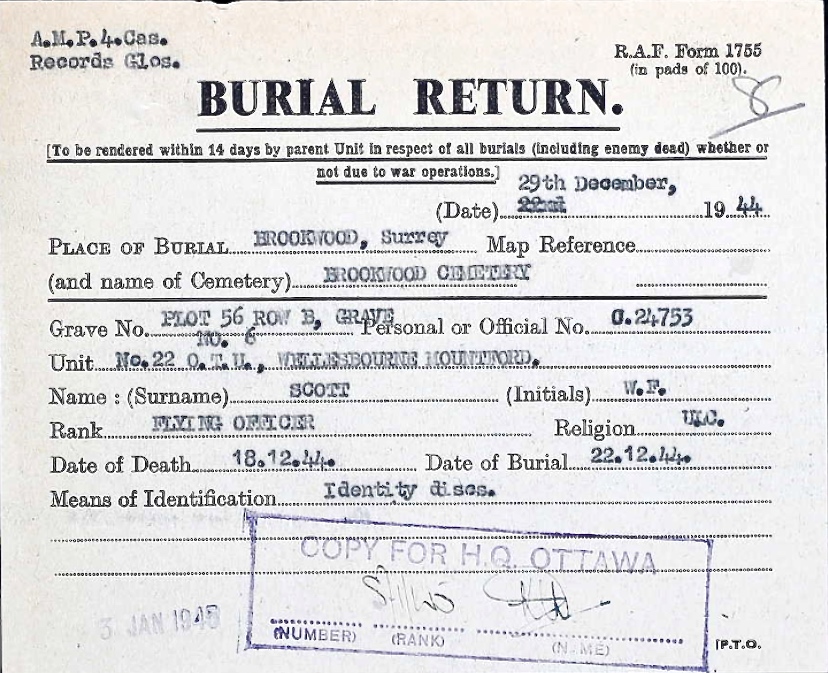 A.M.P.4.Cas.
Records Glos.
R.A.F. Form 1755
(in pads of 100).
BURIAL RETURN.
[To be rendered within 14 days by parent Unit in respect of all burials (including enemy dead) whether or
not due to war operations.]
29th December,
(Date) 22nd 19 44
PLACE OF BURIAL BROOKWOOD, Surrey Map Reference
(and name of Cemetery) BROOKWOOD CEMETERY
Grave No. PLOT 56 ROW B, GRAVE Personal or Official No. C.24753
NO. 6
Unit No.22 O.T.U., WELLESBOURNE MOUNTFORD.
Name : (Surname) SCOTT (Initials) W.F.
Rank FLYING OFFICER Religion U.C.
Date of Death 18.12.44. Date of Burial 22.12.44.
Means of Identification Identity discs.
COPY FOR H.Q. OTTAWA
3 JAN 1945
(NUMBER) (RANK) (NAME)
[P.T.O.